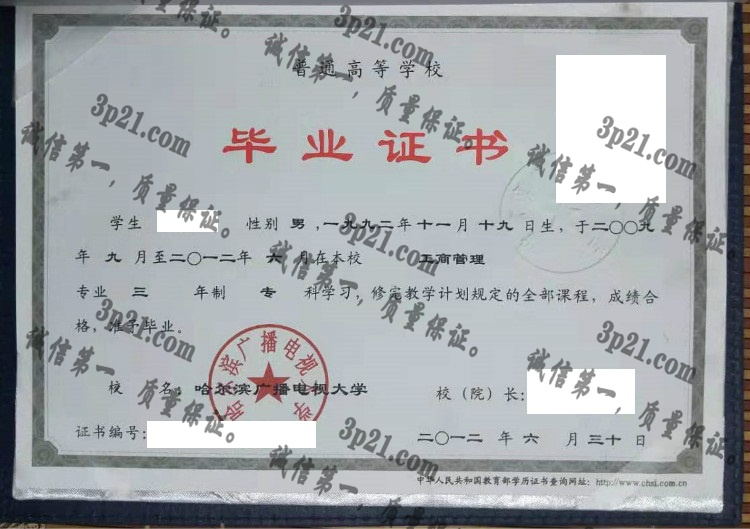 普通高等学校
毕业证书
学生 性别 男,一九九二年十一月十九日生,于二〇〇九
年 九 月至二〇一二年 六 月在本校 工商管理
专业 三 年制 专 科学习,修完教学计划规定的全部课程,成绩合
格,准予毕业。
校 名:哈尔滨广播电视大学
校(院)长:
证书编号:
二〇一二 年 六 月 三十 日
中华人民共和国教育部学历证书查询网址:http://www.chsi.com.cn
哈尔滨广播电视大学
3p21.com
诚信第一,质量保证。
3p21.com
诚信第一,质量保证。
3p21.com
诚信第一,质量保证。
3p21.com
诚信第一,质量保证。
3p21.com
诚信第一,质量保证。
3p21.com
诚信第一,质量保证。
3p21.com
诚信第一,质量保证。